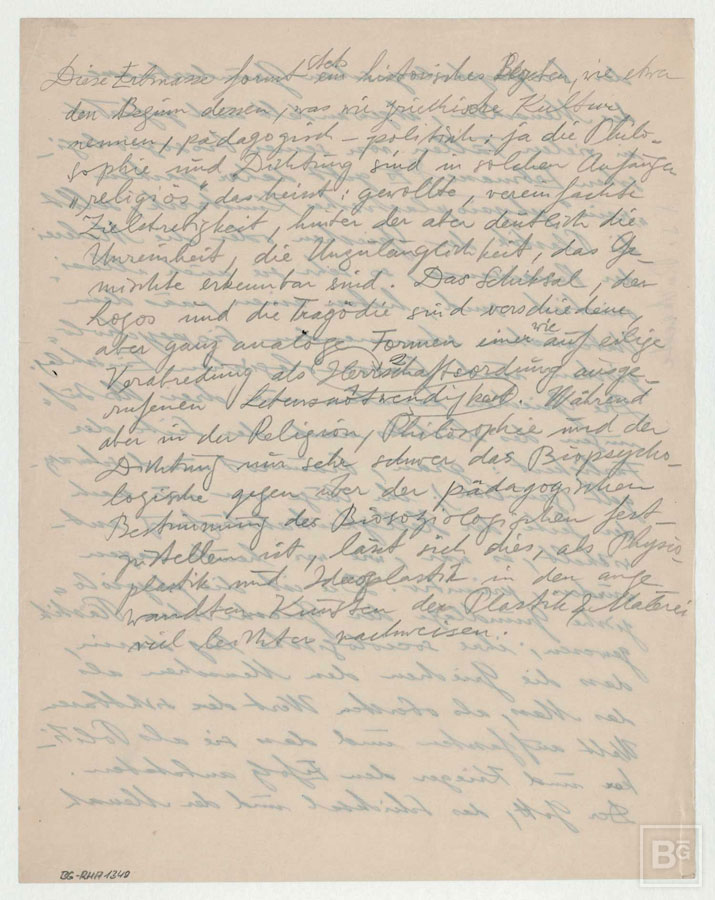 Diese Erbmasse formt stets ein historisches Begeben, wie etwa
den Beginn dessen, was wir griechische Kultur
nennen, pädagogisch-politisch; ja die Philo-
sophie und Dichtung sind in solchen Anfängen
„religiös“, das heisst: gewollte, vereinfachte
Zielstrebigkeit, hinter der aber deutlich die
Unreinheit, die Unzulänglichkeit, das Ge-
mischte erkennbar sind. Das Schicksal, der
Logos und die Tragödie sind verschiedene,
aber ganz analoge Formen einer wie auf eilige
Verabredung als Herrschaftsordnung ausge-
rufenen Lebensnotwendigkeit. Während
aber in der Religion, Philosophie und der
Dichtung nur sehr schwer das Biopsycho-
logische gegenüber der pädagogischen
Bestimmung des Biosoziologischen fest
zustellen ist, lässt sich dies, als Physio-
plastik und Ideoplastik in den ange
wandten Künsten der Plastik & Malerei
viel leichter nachweisen.
BG-RHA1340
BG